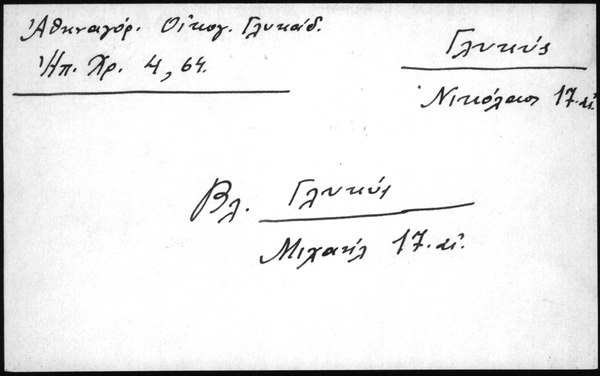 Ἀθηναγόρ. Οἰκογ. Γλυκάδ.
Ἠπ. Χρ. 4, 64.
Γλυκύς
Νικόλαος 17. αἰ.
Βλ. Γλυκύς
Μιχαήλ 17. αἰ.